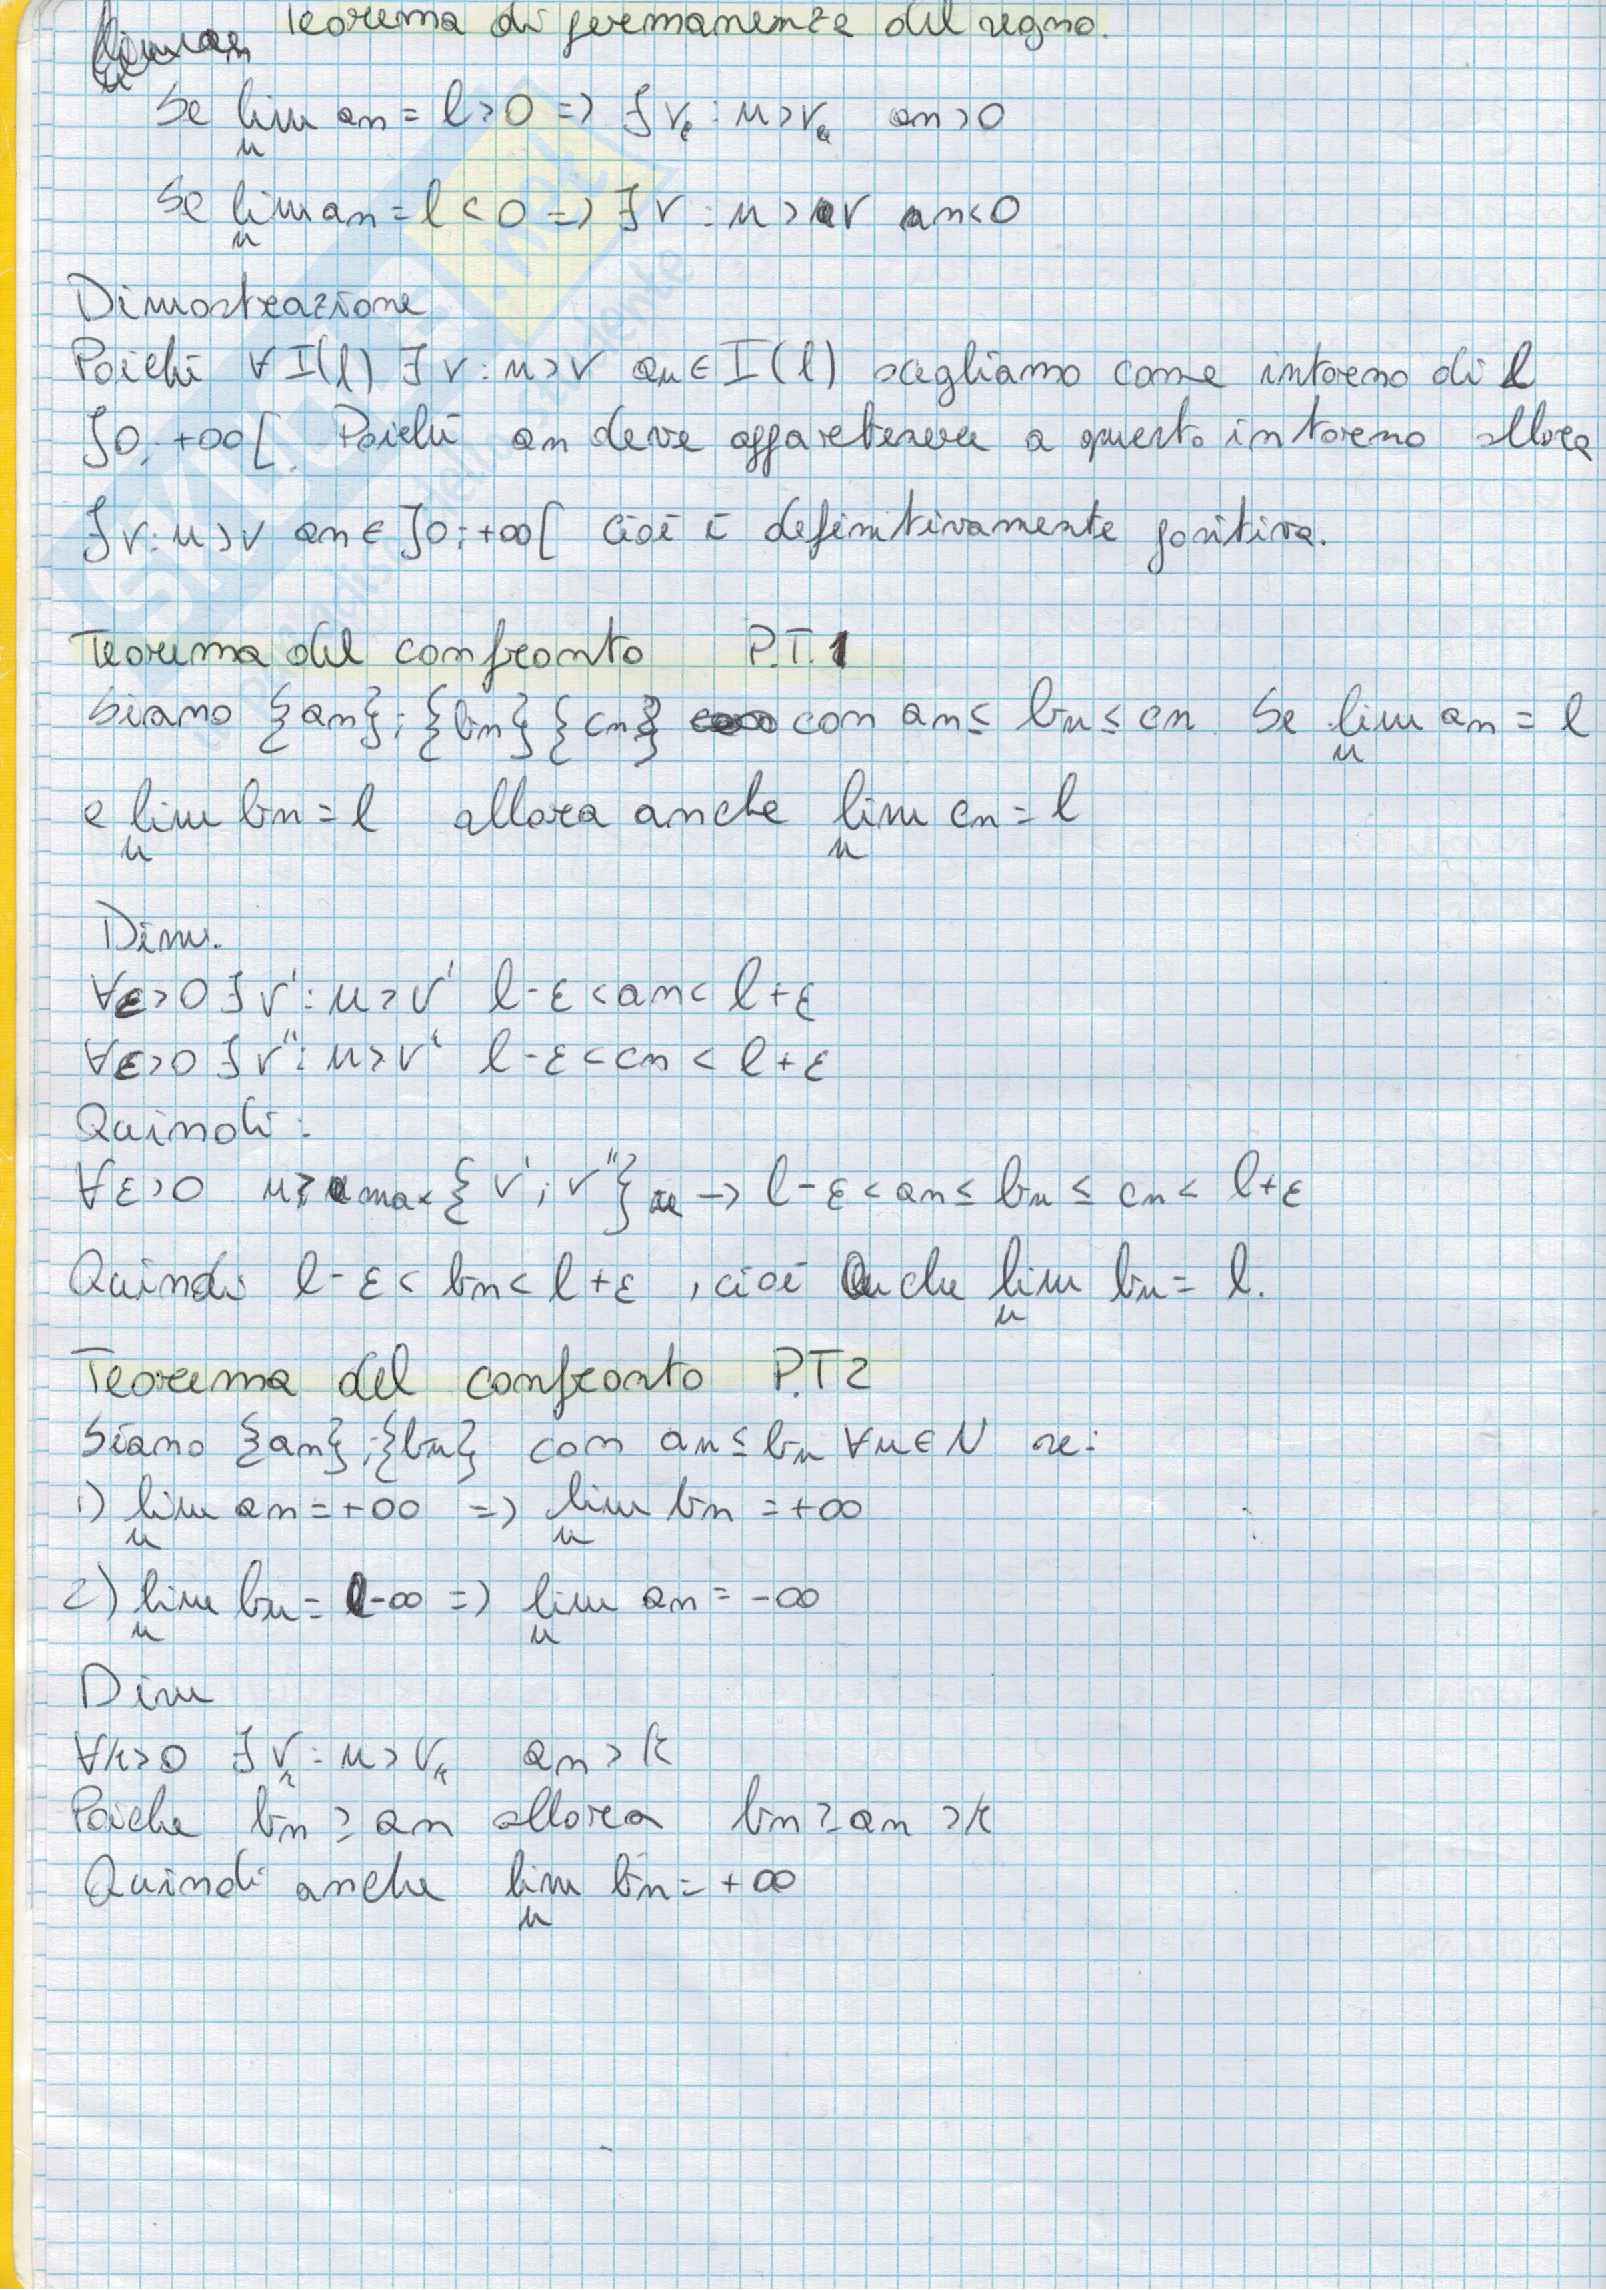 Teorema di permanenza del segno.
Se lim an = l > 0 => ∃ νε : n > νε an > 0
n
Se lim an = l < 0 => ∃ ν : n > ν an < 0
n
Dimostrazione
Poiché ∀ I(l) ∃ ν : n > ν an ∈ I(l) scegliamo come intorno di l
]0; +∞[. Poiché an deve appartenere a questo intorno allora
∃ ν : n > ν an ∈ ]0; +∞[ cioè è definitivamente positiva.
Teorema del confronto P.T.1
Siano {an}; {bn} {cn} con an ≤ bn ≤ cn Se lim an = l
n
e lim bn = l allora anche lim cn = l
n n
Dim.
∀ε>0 ∃ ν' : n > ν' l-ε < an < l+ε
∀ε>0 ∃ ν'' : n > ν' l-ε < cn < l+ε
Quindi:
∀ε>0 n > max {ν'; ν''} → l-ε < an ≤ bn ≤ cn < l+ε
Quindi l-ε < bn < l+ε, cioè anche lim bn = l.
n
Teorema del confronto P.T2
Siano {an}; {bn} con an ≤ bn ∀n ∈ N se:
1) lim an = +∞ => lim bn = +∞
n n
2) lim bn = -∞ => lim an = -∞
n n
Dim
∀k>0 ∃ νk : n > νk an > k
Poiche bn ≥ an allora bn ≥ an > k
Quindi anche lim bn = +∞
n